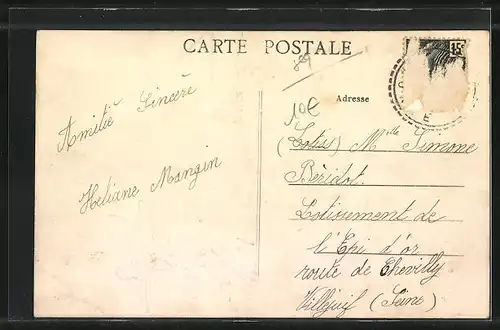 CARTE POSTALE
15c
89
10€
Adresse
Amitié Sincère
Heliane Mangin
(Lotiss) Mlle Simone
Béridot.
Lotissement de
l'Epi d'or
route de Chevilly
Villejuif (Seine)